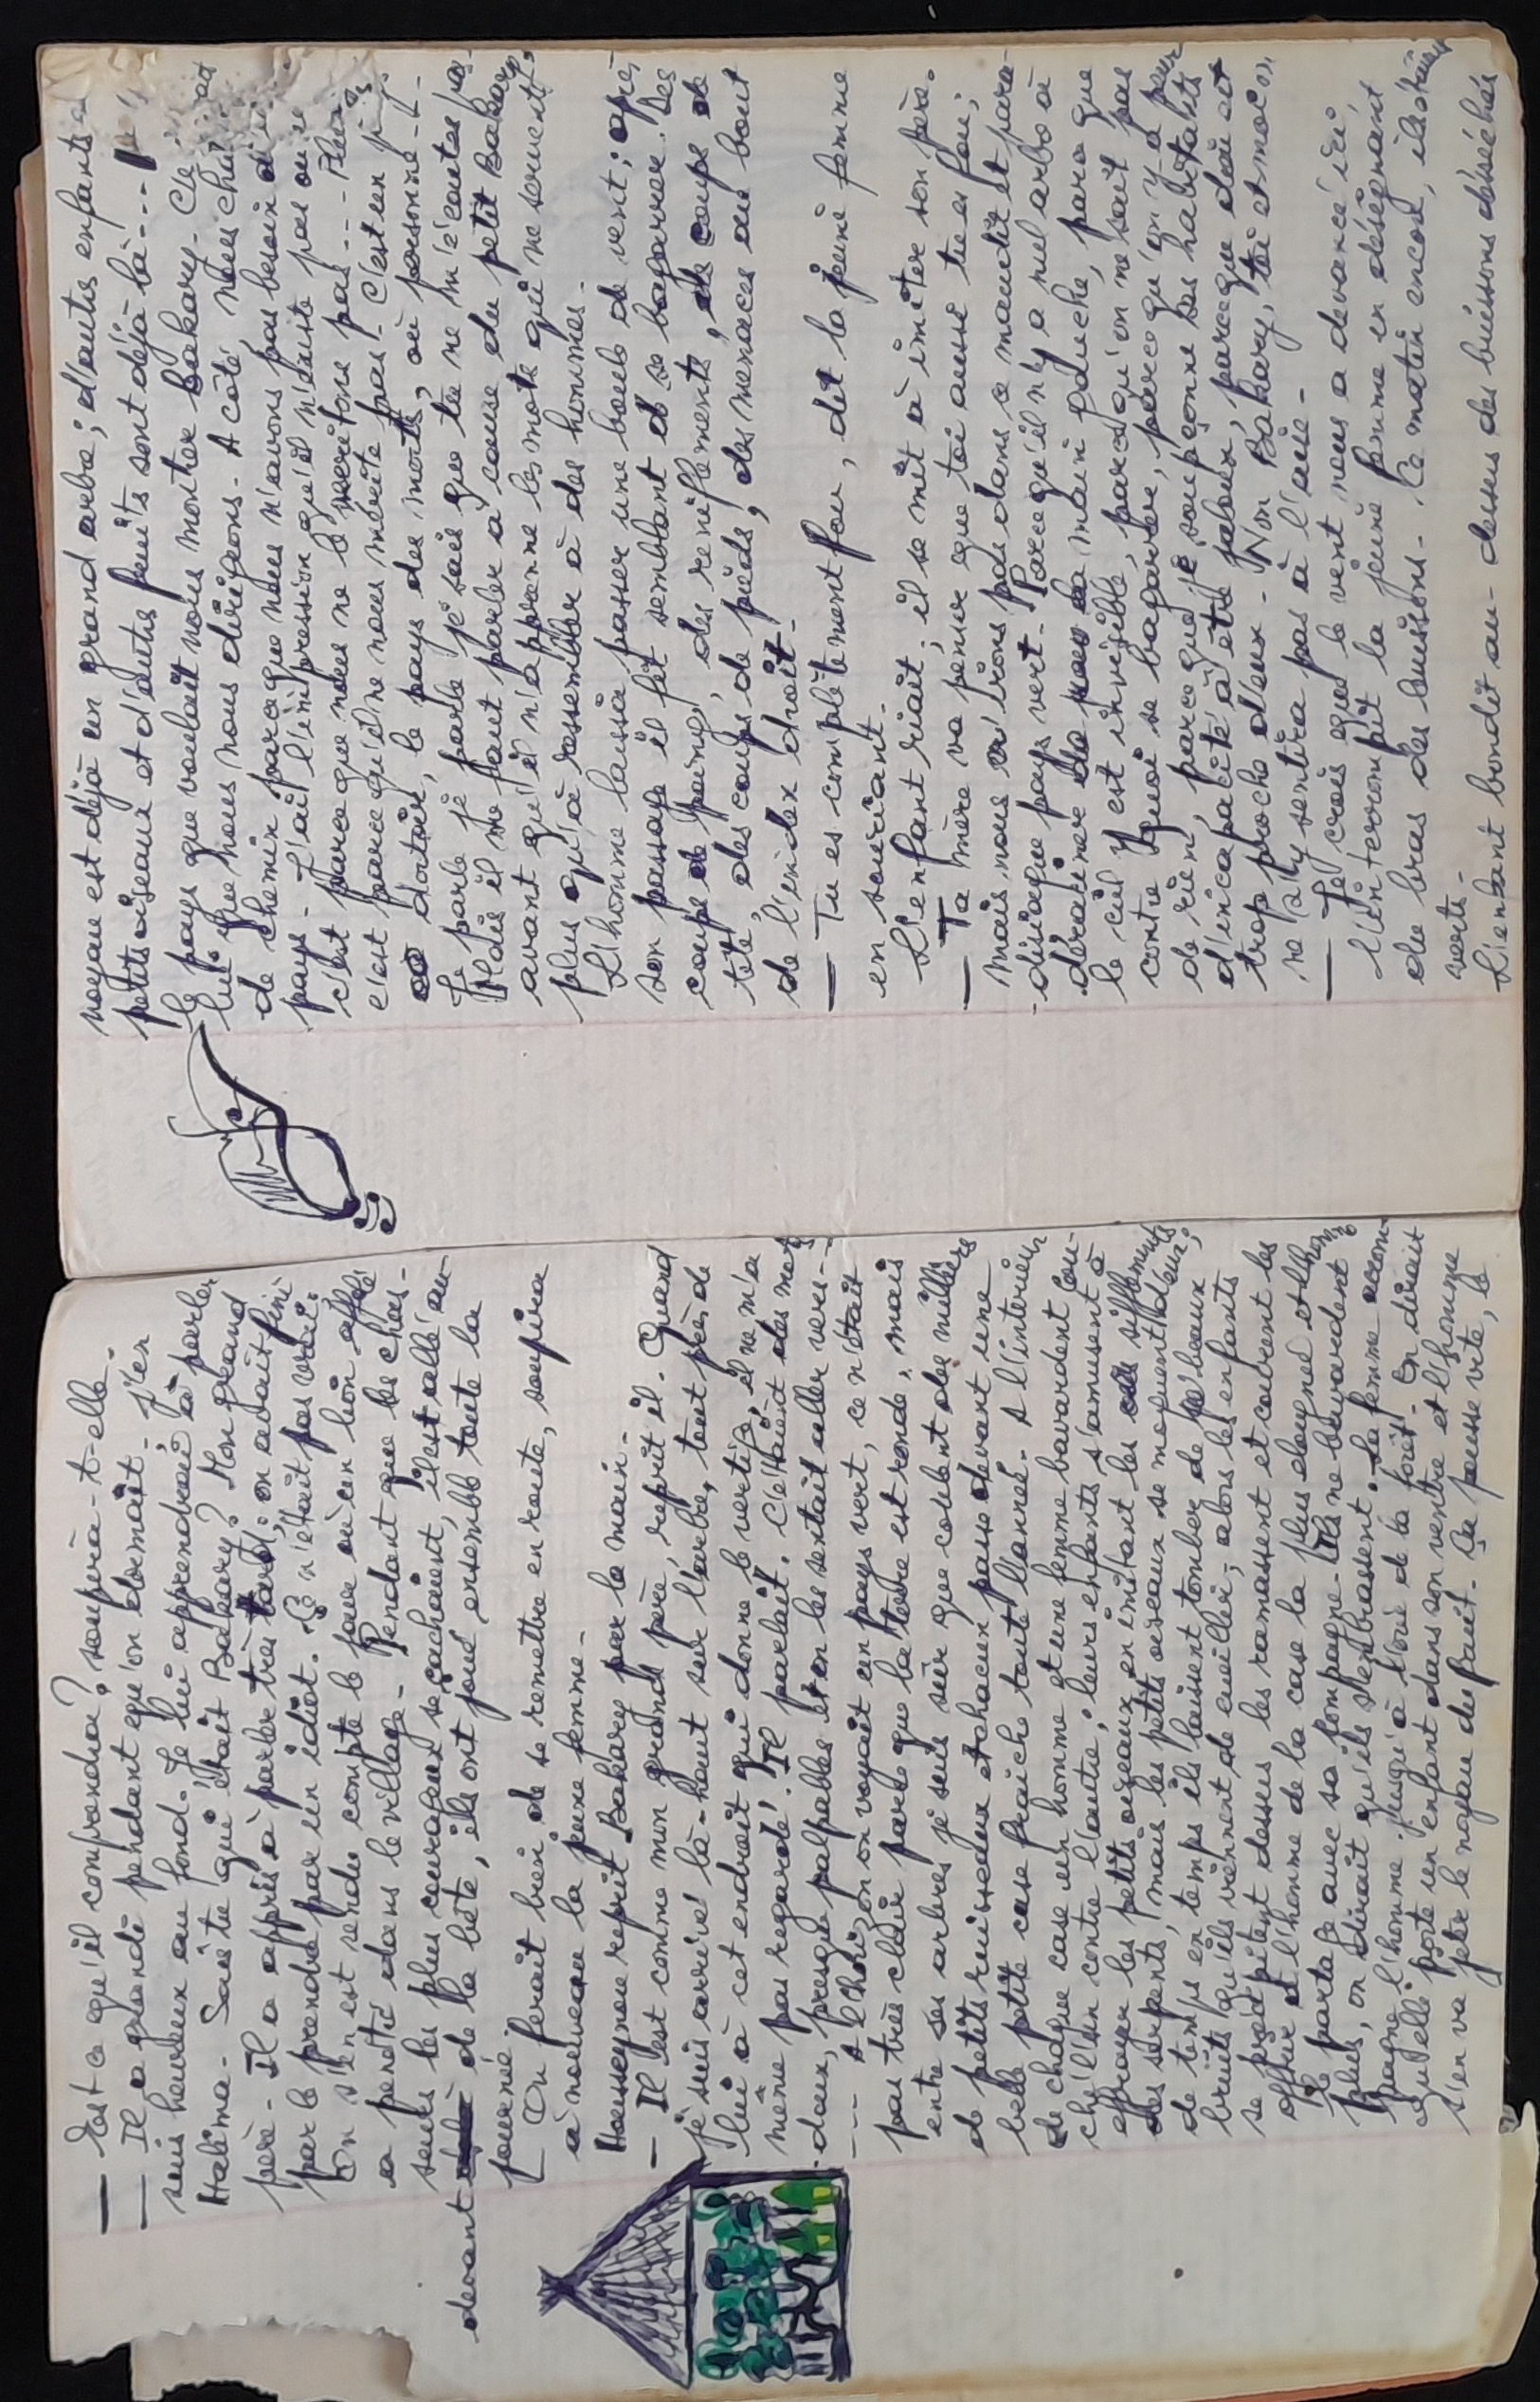 — Est ce qu'il comprendra? soupira-t-elle.
— Il a grandi pendant qu'on dormait. j'en
suis heureux au fond. Je lui apprendrai à parler
Halima. Sais-tu qui était Bakary? Mon grand
père. Il a appris à parler très tard: on avait fini
par le prendre par un idiot. Ce n'était pas vrai:
On s'en est rendu compte le jour où un lion affolé
a pénétré dans le village. Pendant que les chas-
seurs les plus courageux se cachaient, il est allé au-
devant de la bête, ils ont joué ensemble toute la
journée.
— On ferait bien de se remettre en route, soupira
à nouveau la jeune femme.
Housseynou reprit Bakary par la main.
— Il est comme mon grand père, reprit-il. Quand
je suis arrivé là-haut sur l'arbre, tout près de
lui à cet endroit qui donne le vertige, il ne m'a
même pas regardé! Il parlait. C'était des mots
doux, presque palpables et on les sentait aller vers...
... A l'horizon on voyait un pays vert, ce n'était
pas très clair parce que la terre est ronde, mais
entre ses arbres je suis sûr que coulent des milliers
de petits ruisseaux et chacun passe devant une
belle petite case fraîche toute l'année. A l'intérieur
de chaque case un homme et une femme bavardent cou-
chés l'un contre l'autre; leurs enfants s'amusent à
effrayer les petits oiseaux en imitant les sifflements
des serpents, mais les petits oiseaux se moquent d'eux;
de temps en temps ils laissent tomber de beaux
bruits qu'ils viennent de cueillir; alors les enfants
se précipitent dessus les ramassent et courent les
offrir à l'homme de la case la plus éloignée et l'homme
le partage avec sa compagne. Ils ne bavardent
plus, on dirait qu'ils s'embrassent. La femme accom-
pagne l'homme jusqu'à l'orée de la forêt. On dirait
qu'elle porte un enfant dans son ventre et l'homme
s'en va jeter le noyau du fruit. Ça pousse vite, le
noyau est déjà un grand arbre; d'autres enfants
petits oiseaux et d'autres fruits sont déjà là...
le pays que voulait nous montrer Bakary.
lui que nous nous dirigeons. A côté, nous
de chemin parce que nous n'avons pas besoin
pays. J'ai l'impression qu'il n'existe pas ou
c'est parce que nous ne le méritons pas...
c'est parce qu'il ne nous mérite pas. C'est un
dortoir, le pays des morts, où personne
Je parle je parle je sais que tu ne m'écoutes pas.
Mais il me faut parler à cause du petit Bakary
avant qu'il n'apprenne les mots qui ne servent
plus qu'à ressembler à des hommes.
L'homme laissa passer une boule de vent; après
son passage il fit semblant de se bagarrer. Des
coups de poing, des reniflements, des coups de
tête, des coups de pieds, des menaces au bout
de l'index droit.
— Tu es complètement fou, dit la jeune femme
en souriant.
L'enfant riait; il se mit à imiter son père.
— Ta mère va penser que toi aussi tu es fou;
mais nous n'irons pas dans ce maudit et para-
disiaque pays vert. Parce qu'il n'y a nul arbo à
déraciner de la main gauche, parce que
le ciel y est invisible, parce qu'on ne sait pas
contre quoi se bagarrer, parce qu'on y a peur
de rien, parce que je soupçonne ses habitants
d'incapacité à être jaloux, parce que dieu est
trop proche d'eux. Non Bakary, toi et moi on
ne s'y sentira pas à l'aise.
— Je crois que le vent nous a devancé ici,
l'interrompit la jeune femme en désignant
du bras des buissons. Ce matin encore, ils étaient
verts.
L'enfant bondit au-dessus des buissons désséchés